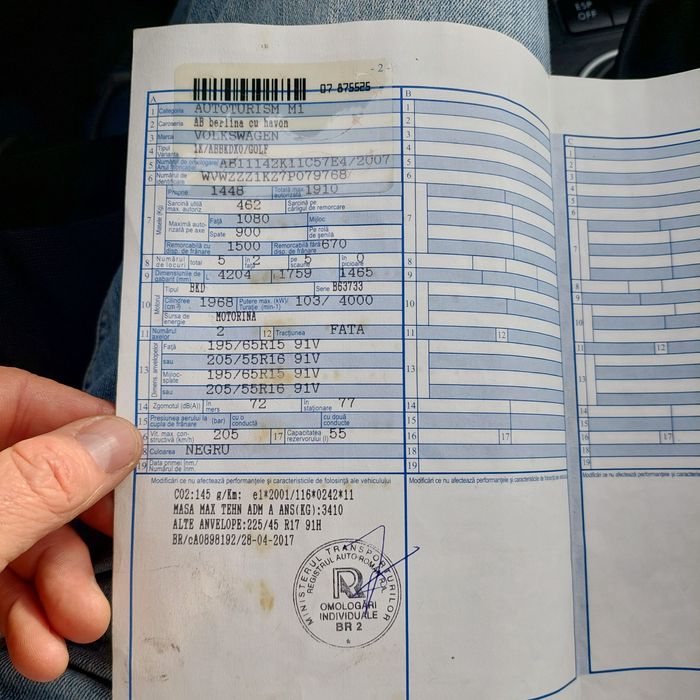 ESP
OFF
- 2 -
07 875525
A
B
C
1 Categoria AUTOTURISM M1
2 Caroseria AB berlina cu havon
3 Marca VOLKSWAGEN
4 Tipul Varianta 1K/ABBKDX0/GOLF
5 Numărul de omologare/ Anul fabricaţiei AB11142K11C57E4/2007
6 Numărul de identificare WVWZZZ1KZ7P079768
7 Masele (Kg) Proprie 1448 Totală max. autorizată 1910
Sarcină utilă max. autoriz. 462 Sarcină pe cârligul de remorcare
Maximă autorizată pe axe Faţă 1080 Mijloc
Spate 900 Pe rolă de şenilă
Remorcabilă cu disp. de frânare 1500 Remorcabilă fără disp. de frânare 670
8 Numărul de locuri total 5 în faţă 2 pe scaune 5 în picioare 0
9 Dimensiunile de gabarit (mm) L 4204 l 1759 1465
10 Motorul Tipul BKD Serie B63733
Cilindree (cm³) 1968 Putere max. (kW)/ Turaţie (min-1) 103/ 4000
Sursa de energie MOTORINA
11 Numărul axelor 2 12 Tracţiunea FATA
13 Dimens. anvelopelor Faţă 195/65R15 91V
sau 205/55R16 91V
Mijloc-spate 195/65R15 91V
sau 205/55R16 91V
14 Zgomotul (dB(A)) în mers 72 în staţionare 77
15 Presiunea aerului la cupla de frânare (bar) cu o conductă cu două conducte
Vit. max. constructivă (km/h) 205 17 Capacitatea rezervorului (l) 55
Culoarea NEGRU
19 Data primei înm./ Numărul de înm.
Modificări ce nu afectează performanţele şi caracteristicile de folosinţă ale vehiculului
CO2:145 g/Km: e1*2001/116*0242*11
MASA MAX TEHN ADM A ANS(KG):3410
ALTE ANVELOPE:225/45 R17 91H
BR/cA0898192/28-04-2017
MINISTERUL TRANSPORTURILOR
REGISTRUL AUTO ROMÂN R.A.
OMOLOGĂRI
INDIVIDUALE
BR 2